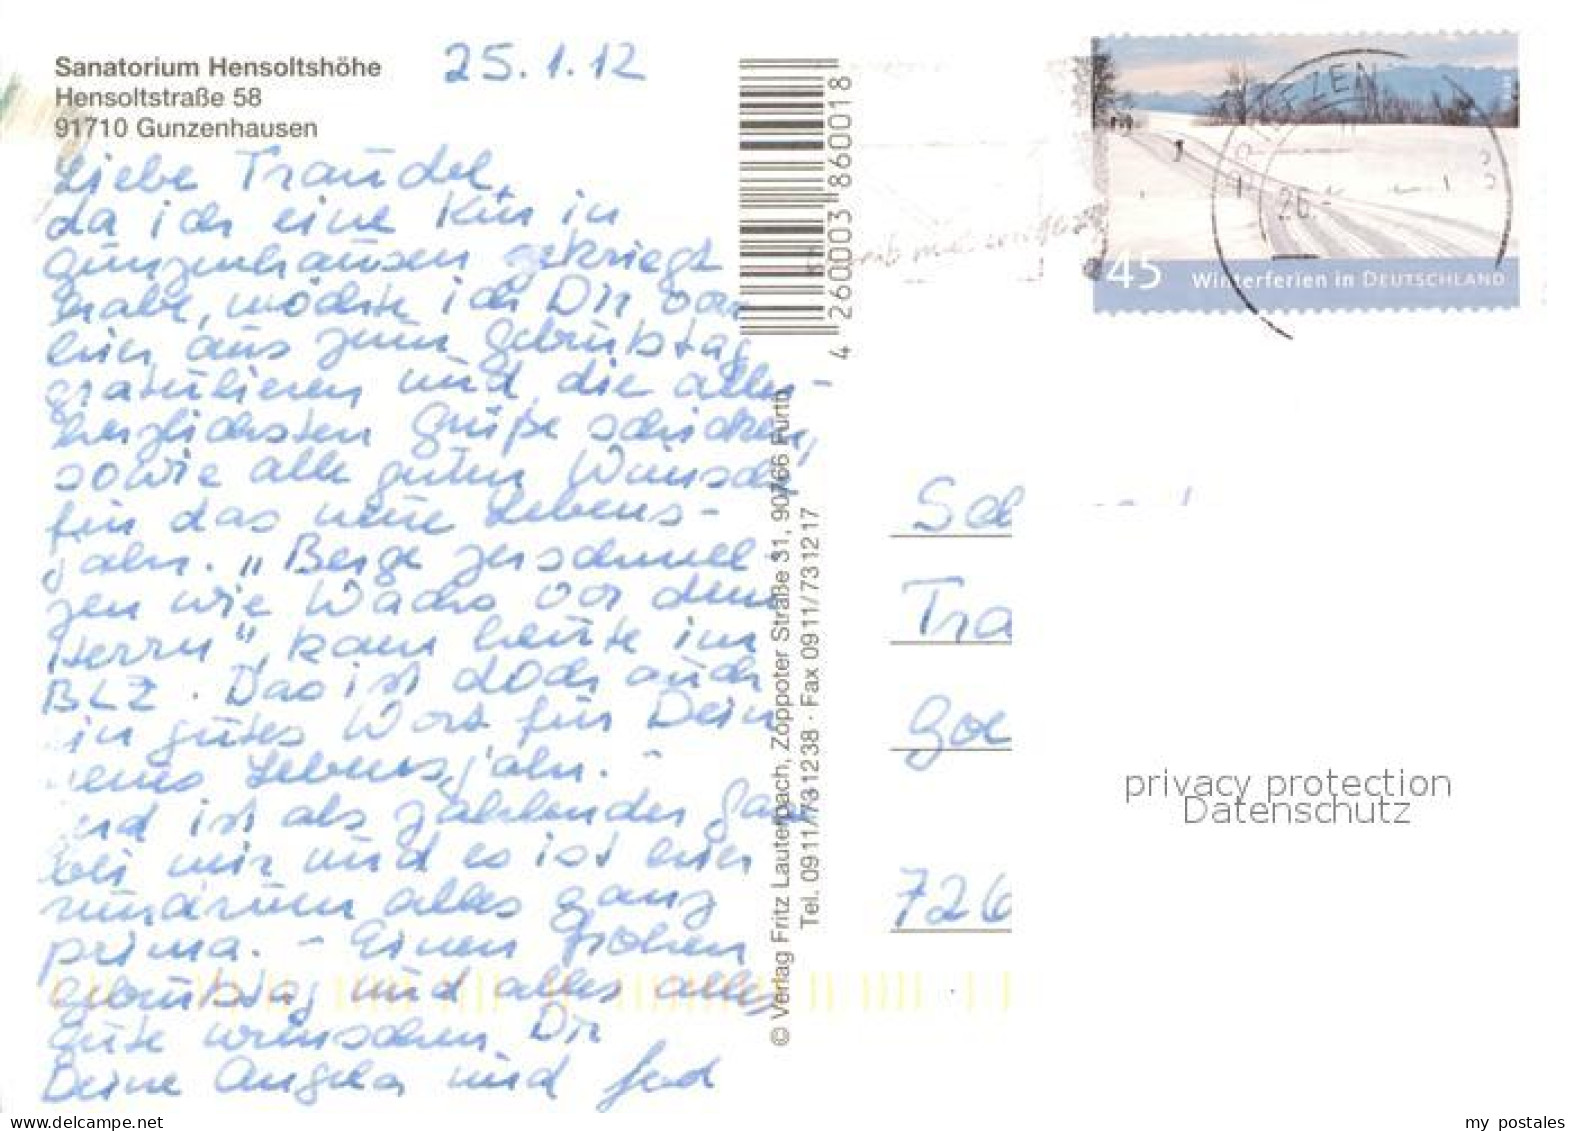 Sanatorium Hensoltshöhe
Hensoltstraße 58
91710 Gunzenhausen
25.1.12
Liebe Traudel,
da ich eine Kur in
Gunzenhausen gekriegt
habe, möchte ich Dir von
hier aus zum Geburtstag
gratulieren und die aller-
herzlichsten Grüße schicken,
sowie alle guten Wünsche
für das neue Lebens-
jahr. „Berge zerschmel-
zen wie Wachs vor dem
Herrn", kam heute im
BLZ. Das ist doch auch
ein gutes Wort für Dein
neues Lebensjahr. -
ist als zahlender Gast
bei mir und es ist hier
rundrum alles ganz
prima. - Einen frohen
Geburtstag und alles alles
Gute wünschen Dir
Deine Angela und
4 260003 860018
© Verlag Fritz Lauterbach, Zoppoter Straße 31, 90766 Fürth
Tel. 0911/731238 · Fax 0911/731217
45 Winterferien in DEUTSCHLAND
26.
Tra
726
privacy protection
Datenschutz
www.delcampe.net
my_postales